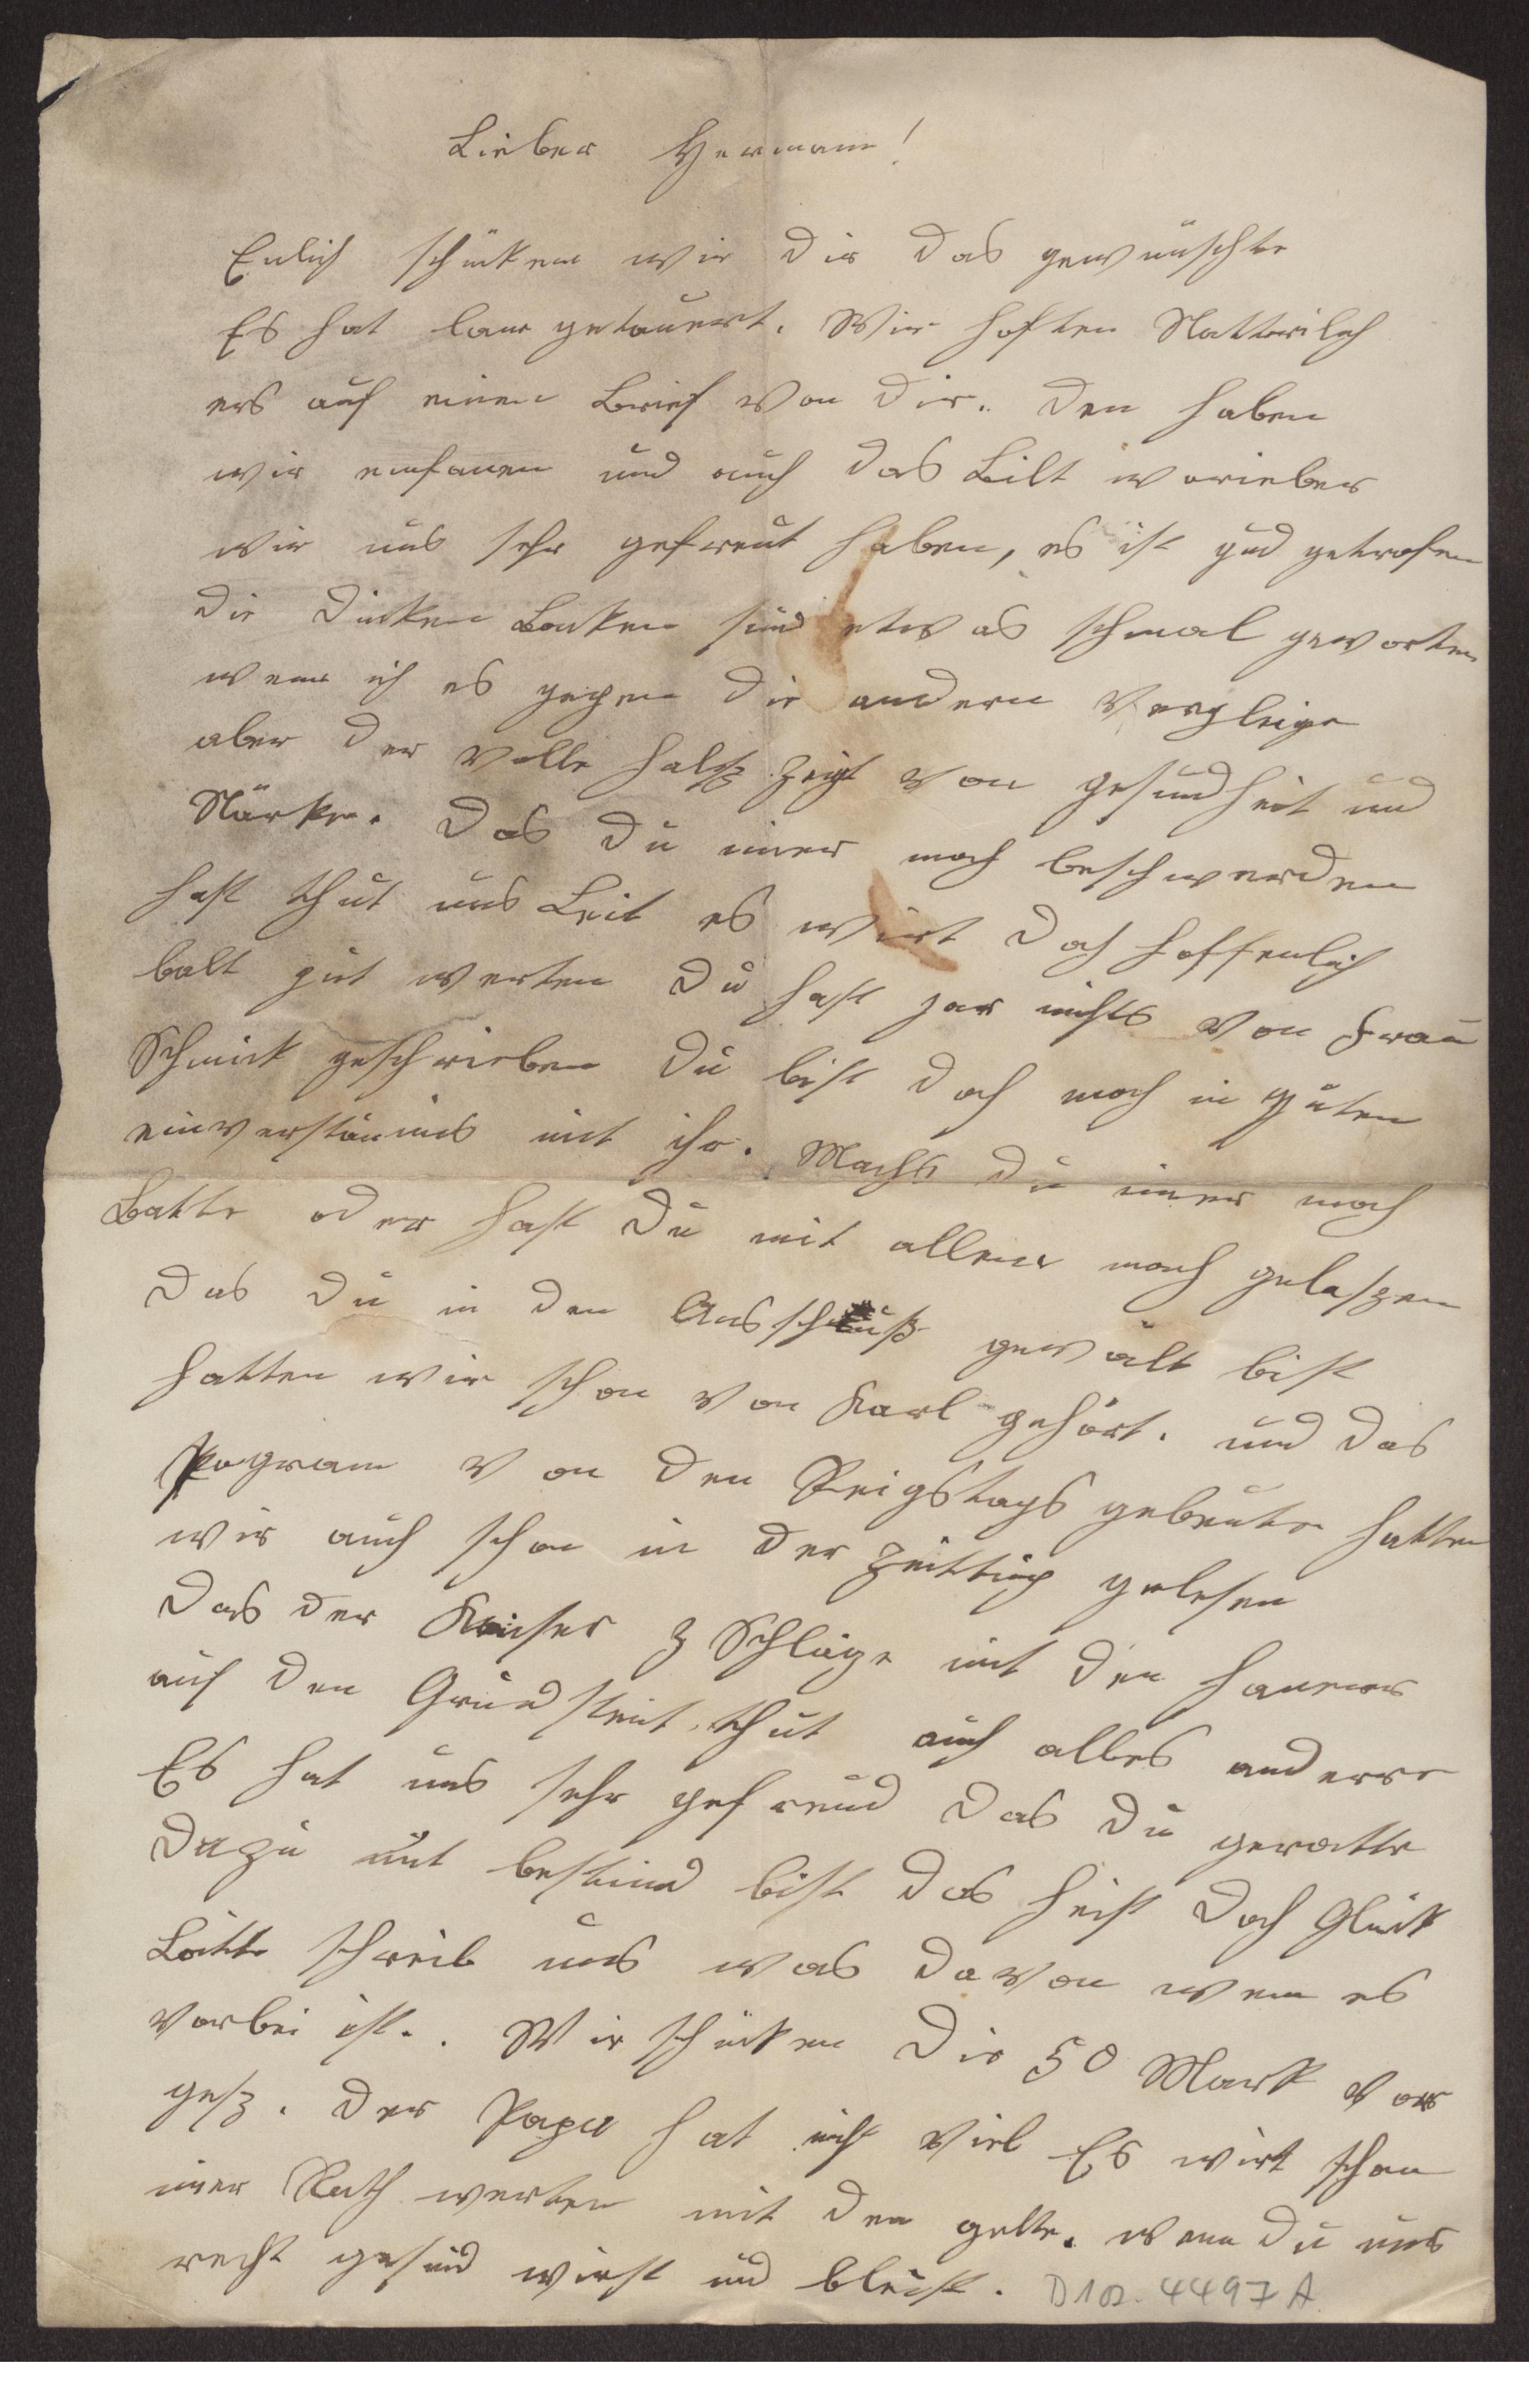 Lieber Hermann!
Enlich schicken wir dir das gewünschte
Es hat lane getauert. Wir hoften Nattirlich
ers auf einen Brief von dir. den haben
wir emfanen und auch das Bilt worieber
wir uns sehr gefreut haben, es ist gud getrofen
die dicken Backen sind etwas schmal geworten
wenn ich es gegen die andern Vergleige
aber der volle halß zeigt von gesundheit und
Stärke. Das du imer noch beschwerden
hast thut uns Leit es wirt doch hoffenlich
balt gut werten du hast gar nichts von Frau
Schmick geschrieben du bist doch noch in guten
einverständnis mit ihr. Machst du imer noch
Batte oder hast du mit allem nach gelaßen
das du in den Ausschuß gewält bist
hatten wir schon von Karl gehört. und das
Pogram von den Reigstags gebeute hatten
wir auch schon in der Zeittung gelesen
das der Keiser 3 Schläge mit den hamer
auf den Grundsteit thut auch alles andere
Es hat uns sehr gefreud das du geratte
dazu mit bestimd bist das heist doch Glück
Bitte schreib uns was davon wenn es
vorbei ist.. Wir schicken dir 50 Mark vor
gesz. der Papa hat nicht viel Es wirt schon
imer Rath werten mit den gelte. wenn du uns
recht gesund wirst und bleist. D102. 4497 A